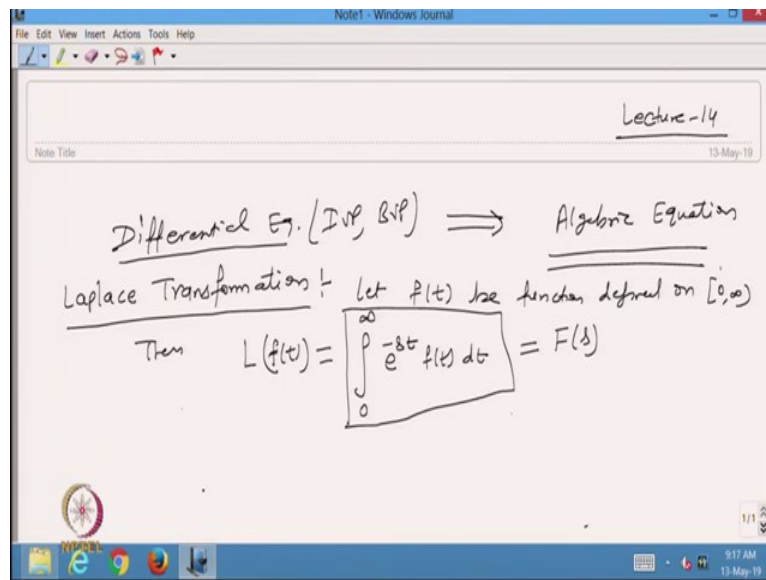 Note1 - Windows Journal
File Edit View Insert Actions Tools Help
Lecture-14
Note Title
13-May-19
Differential Eq. (IVP, BVP) ⟹ Algebric Equation
Laplace Transformation :- Let f(t) be function defined on [0,∞)
Then L(f(t)) = ∫₀^∞ e^{-st} f(t) dt = F(s)
1/1
NPTEL
9:17 AM
13-May-19